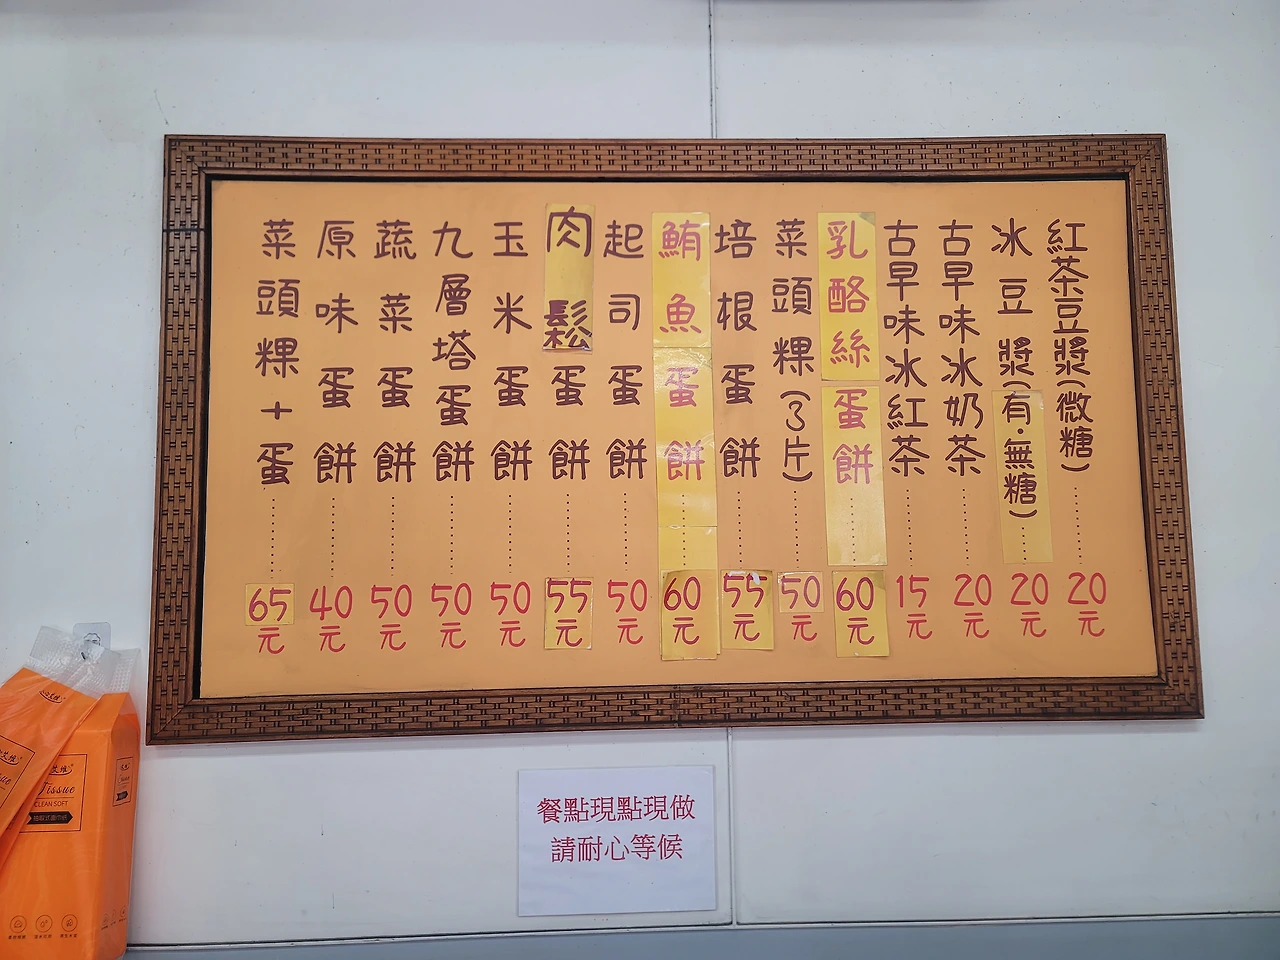 紅茶豆漿(微糖)………20元
冰豆漿(有·無糖)………20元
古早味冰奶茶………20元
古早味冰紅茶………15元
乳酪絲蛋餅………60元
菜頭粿(3片)………50元
培根蛋餅………55元
鮪魚蛋餅………60元
起司蛋餅………50元
肉鬆蛋餅………55元
玉米蛋餅………50元
九層塔蛋餅………50元
蔬菜蛋餅………50元
原味蛋餅………40元
菜頭粿+蛋………65元
餐點現點現做
請耐心等候
Tissue
CLEAN SOFT